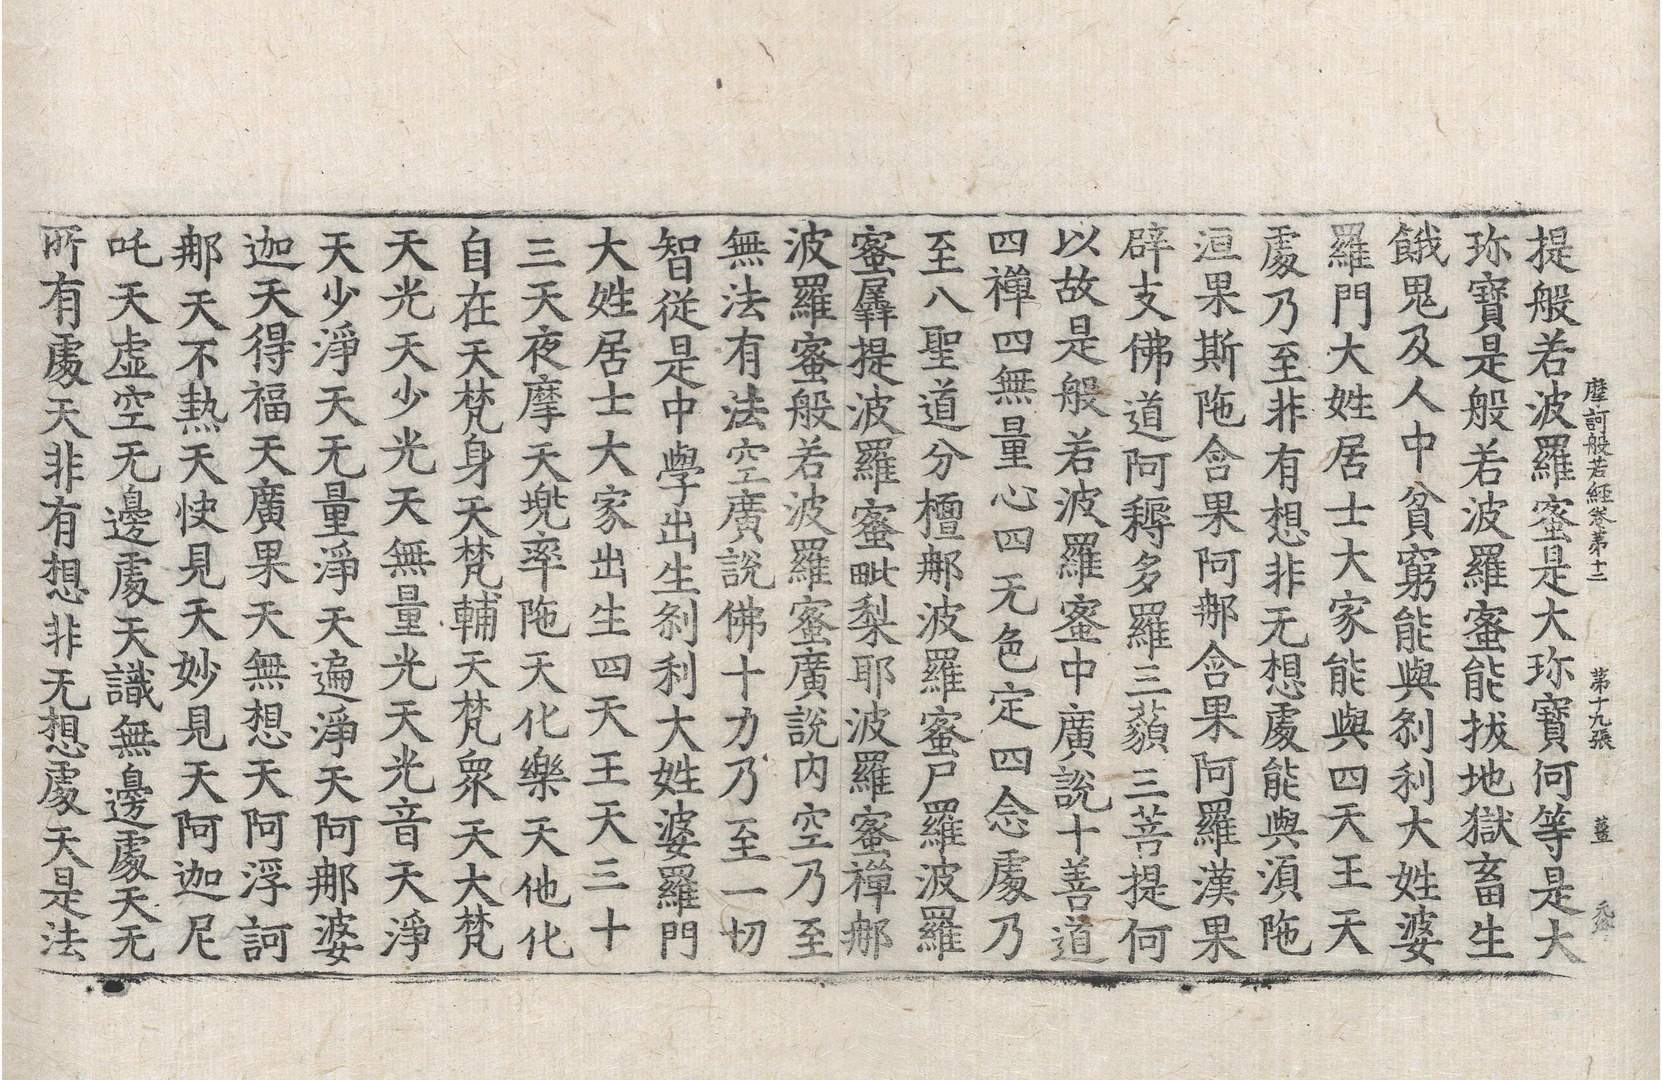 摩訶般若經卷第十二　第十九張　薑
提般若波羅蜜是大珎寶何等是大
珎寶是般若波羅蜜能拔地獄畜生
餓鬼及人中貧窮能與刹利大姓婆
羅門大姓居士大家能與四天王天
處乃至非有想非无想處能與湏陁
洹果斯陁含果阿那含果阿羅漢果
辟支佛道阿耨多羅三藐三菩提何
以故是般若波羅蜜中廣說十善道
四禪四無量心四无色定四念處乃
至八聖道分檀那波羅蜜尸羅波羅
蜜羼提波羅蜜毗梨耶波羅蜜禪那
波羅蜜般若波羅蜜廣說内空乃至
無法有法空廣說佛十力乃至一切
智從是中學出生刹利大姓婆羅門
大姓居士大家出生四天王天三十
三天夜摩天兜率陁天化樂天他化
自在天梵身天梵輔天梵衆天大梵
天光天少光天無量光天光音天淨
天少淨天无量淨天遍淨天阿那婆
迦天得福天廣果天無想天阿浮訶
那天不熱天快見天妙見天阿迦尼
吒天虛空无邊處天識無邊處天无
所有處天非有想非无想處天是法